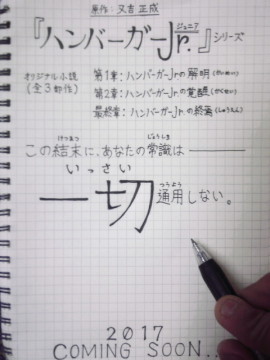 原作:又吉正成
『ハンバーガーJr.』シリーズ
ジュニア
オリジナル小説
(全3部作)
第1章:ハンバーガーJr.の解明(かいめい)
第2章:ハンバーガーJr.の覚醒(かくせい)
最終章:ハンバーガーJr.の終焉(しゅうえん)
けつまつ
じょうしき
この結末に、あなたの常識は――
いっさい
つうよう
一切通用しない。
2017
COMING SOON...